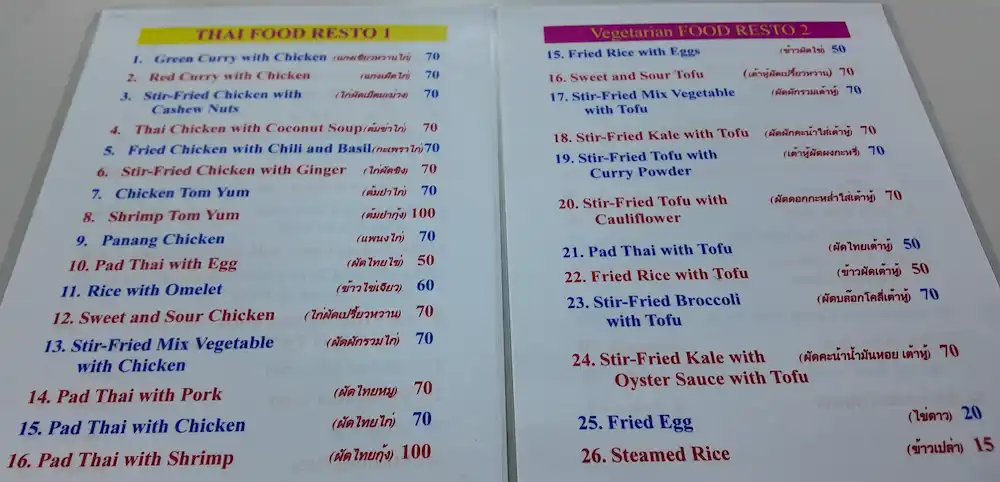 THAI FOOD RESTO 1
1. Green Curry with Chicken (แกงเขียวหวานไก่) 70
2. Red Curry with Chicken (แกงเผ็ดไก่) 70
3. Stir-Fried Chicken with (ไก่ผัดเม็ดมะม่วง) 70
Cashew Nuts
4. Thai Chicken with Coconut Soup (ต้มข่าไก่) 70
5. Fried Chicken with Chili and Basil (กะเพราไก่) 70
6. Stir-Fried Chicken with Ginger (ไก่ผัดขิง) 70
7. Chicken Tom Yum (ต้มยำไก่) 70
8. Shrimp Tom Yum (ต้มยำกุ้ง) 100
9. Panang Chicken (แพนงไก่) 70
10. Pad Thai with Egg (ผัดไทยไข่) 50
11. Rice with Omelet (ข้าวไข่เจียว) 60
12. Sweet and Sour Chicken (ไก่ผัดเปรี้ยวหวาน) 70
13. Stir-Fried Mix Vegetable (ผัดผักรวมไก่) 70
with Chicken
14. Pad Thai with Pork (ผัดไทยหมู) 70
15. Pad Thai with Chicken (ผัดไทยไก่) 70
16. Pad Thai with Shrimp (ผัดไทยกุ้ง) 100
Vegetarian FOOD RESTO 2
15. Fried Rice with Eggs (ข้าวผัดไข่) 50
16. Sweet and Sour Tofu (เต้าหู้ผัดเปรี้ยวหวาน) 70
17. Stir-Fried Mix Vegetable (ผัดผักรวมเต้าหู้) 70
with Tofu
18. Stir-Fried Kale with Tofu (ผัดผักคะน้าใส่เต้าหู้) 70
19. Stir-Fried Tofu with (เต้าหู้ผัดผงกะหรี่) 70
Curry Powder
20. Stir-Fried Tofu with (ผัดดอกกะหล่ำใส่เต้าหู้) 70
Cauliflower
21. Pad Thai with Tofu (ผัดไทยเต้าหู้) 50
22. Fried Rice with Tofu (ข้าวผัดเต้าหู้) 50
23. Stir-Fried Broccoli (ผัดบล๊อกโคลี่เต้าหู้) 70
with Tofu
24. Stir-Fried Kale with (ผัดคะน้าน้ำมันหอย เต้าหู้) 70
Oyster Sauce with Tofu
25. Fried Egg (ไข่ดาว) 20
26. Steamed Rice (ข้าวเปล่า) 15